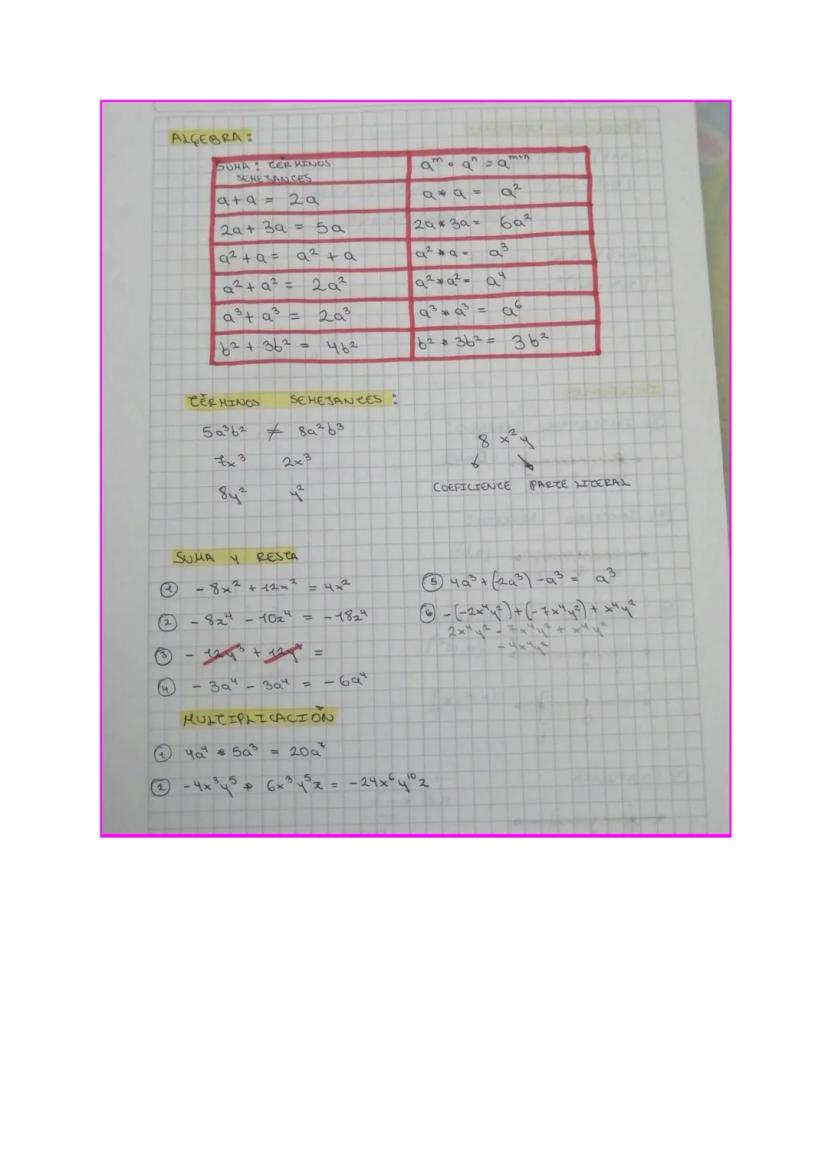 ALGEBRA:
SUMA: TÉRMINOS SEMEJANTES
a^m * a^n = a^{m+n}
a + a = 2a
a * a = a²
2a + 3a = 5a
2a * 3a = 6a²
a² + a = a² + a
a² * a = a³
a² + a² = 2a²
a² * a² = a⁴
a³ + a³ = 2a³
a³ * a³ = a⁶
b² + 3b² = 4b²
b² * 3b² = 3b²
TÉRMINOS SEMEJANTES:
5a³b² ≠ 8a²b³
7x³ 2x³
8y² y²
8 x²y
COEFICIENTE PARTE LITERAL
SUMA Y RESTA
① - 8x² + 12x² = 4x²
② - 8z⁴ - 10z⁴ = - 18z⁴
③ - 12y³ + 12y³ =
④ - 3a⁴ - 3a⁴ = - 6a⁴
⑤ 4a³ + (-2a³) - a³ = a³
⑥ - (-2x⁴y²) + (-7x⁴y²) + x⁴y²
2x⁴y² - 7x⁴y² + x⁴y²
- 4x⁴y²
MULTIPLICACIÓN
① 4a⁴ * 5a³ = 20a⁷
② - 4x³y⁵ * 6x³y⁵z = - 24x⁶y¹⁰z